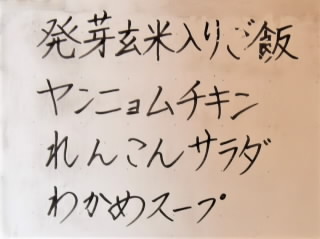 発芽玄米入りご飯
ヤンニョムチキン
れんこんサラダ
わかめスープ